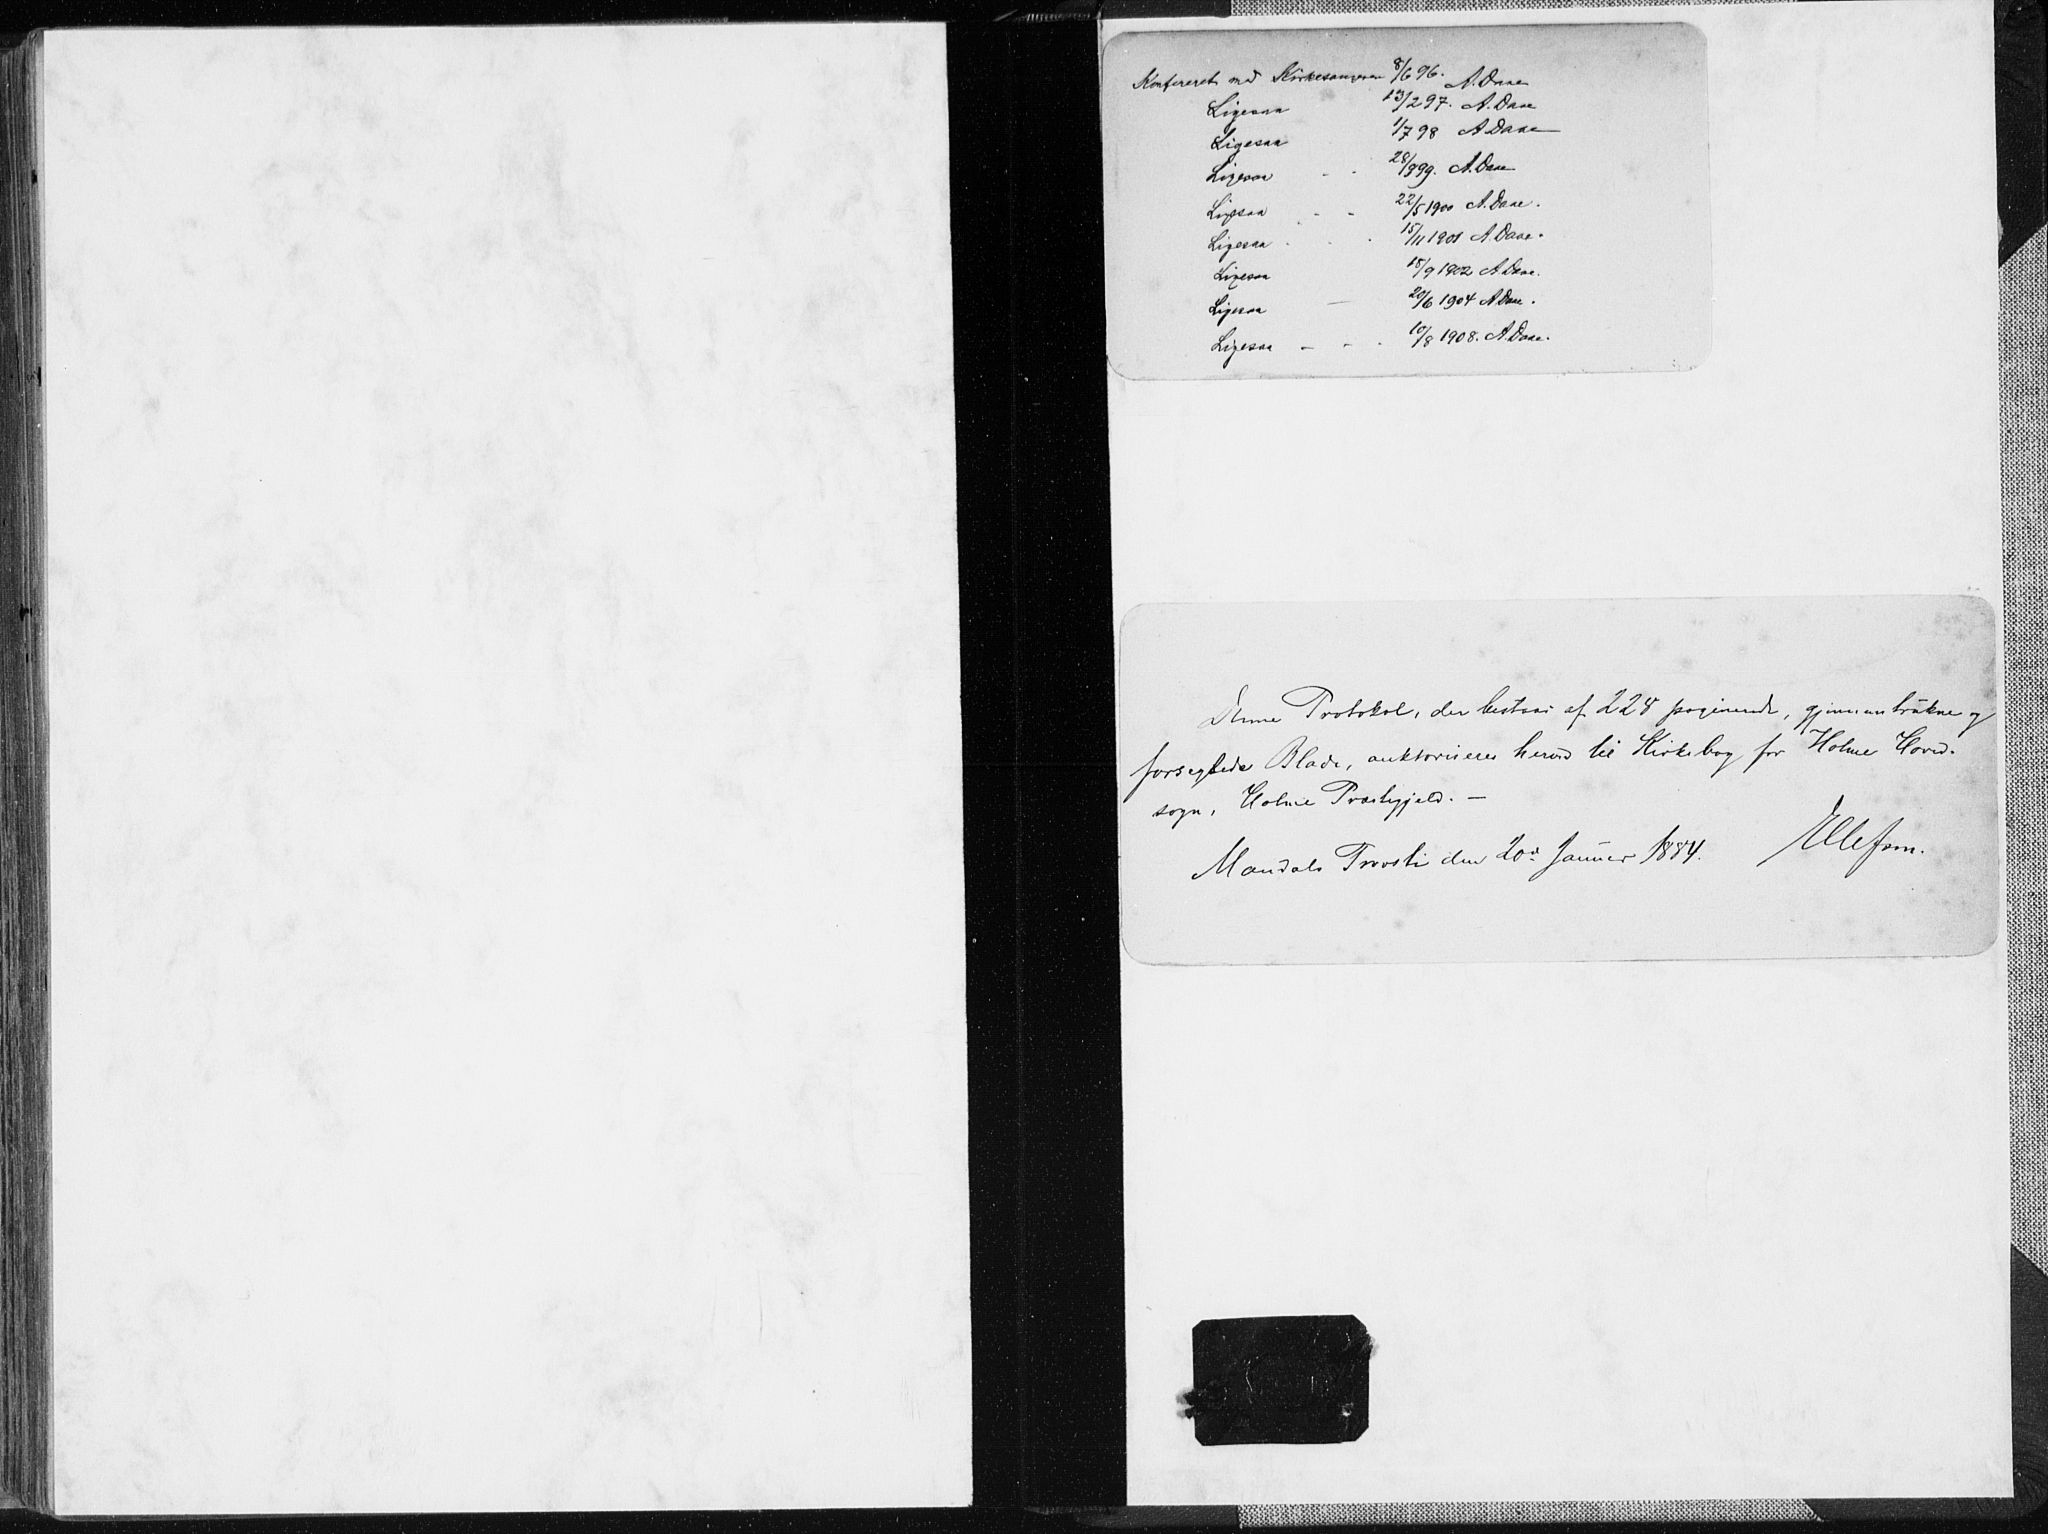 Konfereret med Kirkesangeren 8/6 96. A. Daae
Ligesaa 13/2 97. A. Daae
Ligesaa 1/7 98 A. Daae
Ligesaa - - 28/9 99. A. Daae
Ligesaa - - 22/5 1900 A. Daae.
Ligesaa - - - 15/11 1901 A. Daae.
Ligesaa 18/9 1902 A. Daae.
Ligesaa — 20/6 1904 A. Daae.
Ligesaa - - - 10/8 1908. A. Daae.
Denne Protokol, der bestaar af 228 paginerede, gjennemtrukne og
forseglede Blade, auktoriseres herved til Kirkebog for Holme Hoved-
sogn, Holme Præstegjeld. —
Mandals Provsti den 20de Januar 1884. Ellefsen.